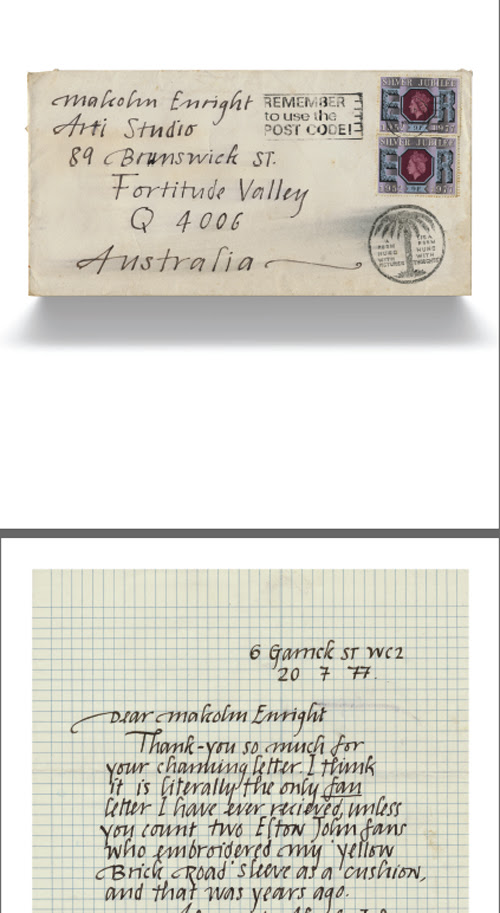 malcolm Enright
Arti Studio
89 Brunswick ST.
Fortitude Valley
Q 4006
Australia
REMEMBER
to use the
POST CODE!
SILVER JUBILEE
SILVER JUBILEE
HUNG
WITH
PICTURES
HUNG
WITH
6 Garrick ST WC2
20 7 77.
Dear malcolm Enright
Thank-you so much for
your charming letter. I think
it is literally the only fan
letter I have ever recieved, unless
you count two Elton John fans
who embroidered my yellow
Brick Road sleeve as a cushion,
and that was years ago.